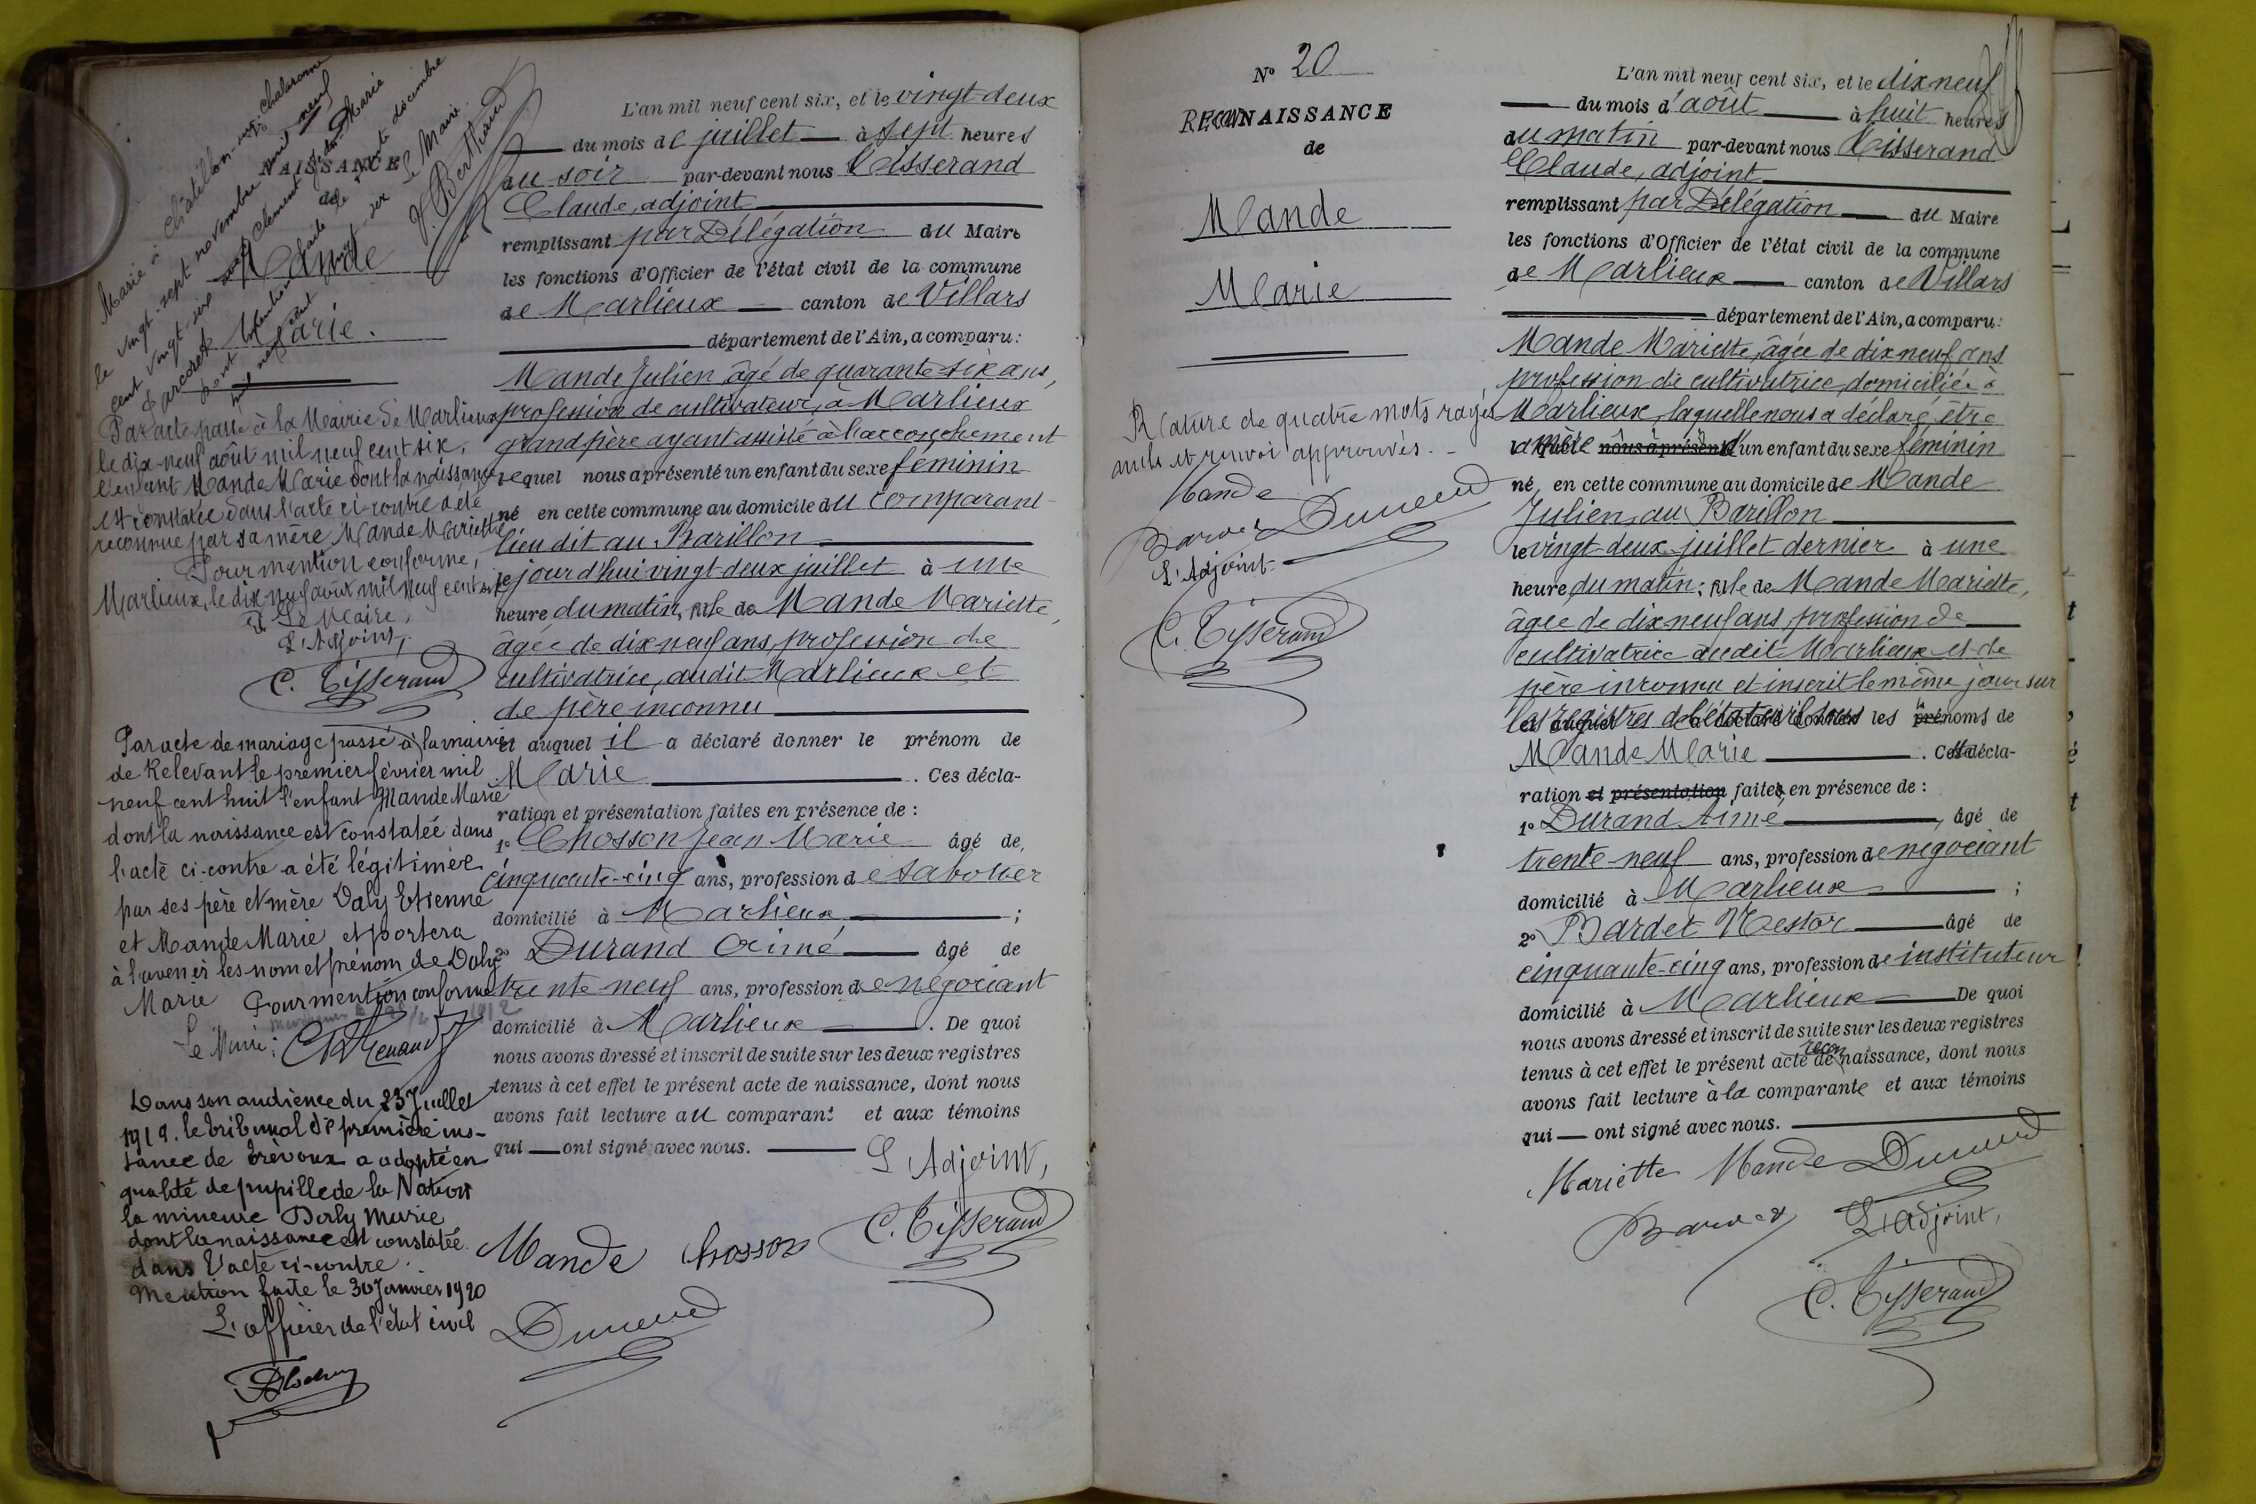 Marié à Châtillon-sur-Chalaronne
le vingt-sept novembre mil neuf
cent vingt six
avec Clément
Marie
Dont mention faite le trente décembre
mil neuf cent vingt-six Le Maire.
J. Berthieu
NAISSANCE
de
Mande
Marie.
Par acte passé à la Mairie de Marlieux
le dix-neuf août mil neuf cent six,
l'enfant Mande Marie dont la naissance
est constatée dans l'acte ci-contre a été
reconnue par sa mère Mande Mariette
Pour mention conforme,
Marlieux, le dix neuf août mil neuf cent six
Le Maire,
L'Adjoint,
C. Tisserand
Par acte de mariage passé à la mairie
de Relevant le premier février mil
neuf cent huit l'enfant Mande Marie
dont la naissance est constatée dans
l'acte ci-contre a été légitimée
par ses père et mère Daly Etienne
et Mande Marie et portera
à l'avenir les nom et prénom de Daly
Marie Pour mention conforme
Le Maire:
Dans son audience du 23 Juillet
1919. le tribunal de première ins-
tance de Trévoux a adopté en
qualité de pupille de la Nation
la mineure Daly Marie
dont la naissance est constatée
dans l'acte ci-contre.
Mention faite le 30 Janvier 1920
L'officier de l'état civil
L'an mil neuf cent six, et le vingt-deux
du mois de juillet à sept heures
du soir par-devant nous Tisserand
Claude, adjoint
remplissant par Délégation du Maire
les fonctions d'Officier de l'état civil de la commune
de Marlieux canton de Villars
département de l'Ain, a comparu:
Mande Julien âgé de quarante-six ans,
profession de cultivateur, à Marlieux
grand père ayant assisté à l'accouchement
lequel nous a présenté un enfant du sexe féminin
né en cette commune au domicile du comparant
lieu dit au Barillon
le jour d'hui vingt-deux juillet à une
heure du matin, fille de Mande Mariette,
âgée de dix-neuf ans, profession de
cultivatrice, audit Marlieux et
de père inconnu
et auquel il a déclaré donner le prénom de
Marie. Ces décla-
ration et présentation faites en présence de :
1° Chosson Jean Marie âgé de,
cinquante-cinq ans, profession de sabotier
domicilié à Marlieux ;
2° Durand Aimé âgé de
trente neuf ans, profession de négociant
domicilié à Marlieux. De quoi
nous avons dressé et inscrit de suite sur les deux registres
tenus à cet effet le présent acte de naissance, dont nous
avons fait lecture au comparant et aux témoins
qui ont signé avec nous.
L'Adjoint,
Mande Chosson C. Tisserand
Durand
N° 20
RECONNAISSANCE
de
Mande
Marie
Rature de quatre mots rayés
nuls et renvoi approuvés.
Mande
Bardet Durand
L'Adjoint
C. Tisserand
L'an mil neuf cent six, et le dix neuf
du mois d'août à huit heures
du matin par-devant nous Tisserand
Claude, adjoint
remplissant par Délégation du Maire
les fonctions d'Officier de l'état civil de la commune
de Marlieux canton de Villars
département de l'Ain, a comparu:
Mande Mariette, âgée de dix neuf ans
profession de cultivatrice, domiciliée à
Marlieux, laquelle nous a déclaré être
la mère nous a présenté d'un enfant du sexe féminin
né, en cette commune au domicile de Mande
Julien, au Barillon
le vingt-deux juillet dernier à une
heure du matin; fille de Mande Mariette,
âgée de dix neuf ans, profession de
cultivatrice audit Marlieux et de
père inconnu et inscrit le même jour sur
les registres de l'état civil sous les prénoms de
Mande Marie. Cette décla-
ration et présentation faite, en présence de :
1° Durand Aimé, âgé de
trente-neuf ans, profession de négociant
domicilié à Marlieux ;
2° Bardet Nestor âgé de
cinquante-cinq ans, profession de instituteur
domicilié à Marlieux De quoi
nous avons dressé et inscrit de suite sur les deux registres
tenus à cet effet le présent acte de reconnaissance, dont nous
avons fait lecture à la comparante et aux témoins
qui ont signé avec nous.
Mariette Mande Durand
Bardet L'Adjoint,
C. Tisserand